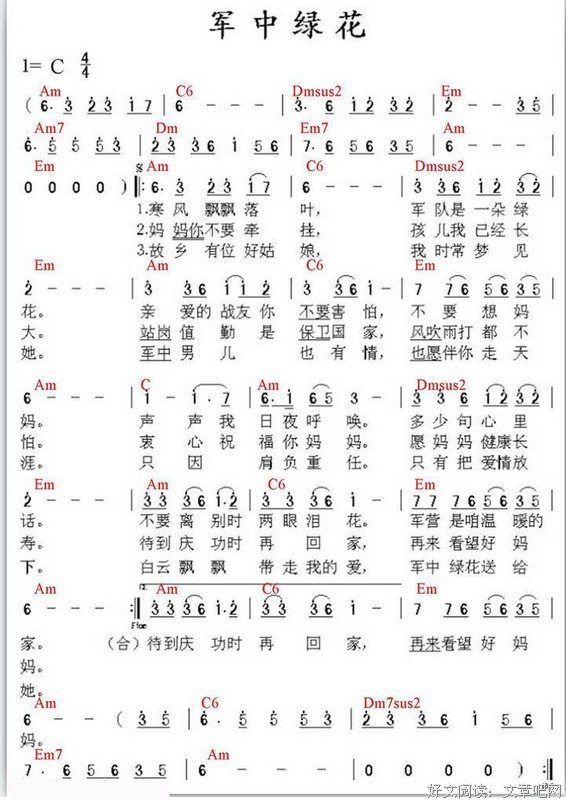 军中绿花
1= C 4/4
Am C6 Dmsus2 Em
( 6· 3 2 3 1 7 | 6 - - - | 3· 6 1 2 3 2 | 2 - - 3 5 |
Am7 Dm Em7 Am
6· 5 5 5 3 | 2 3 3 6 1 5 6 | 7· 6 5 6 3 5 | 6 - - - |
Em Am C6 Dmsus2
0 0 0 0 ) |: 6· 3 2 3 1 7 | 6 - - - | 3 3 6 1 2 3 2 |
1.寒风飘飘落叶, 军队是一朵绿
2.妈妈你不要牵挂, 孩儿我已经长
3.故乡有位好姑娘, 我时常梦见
Em Am C6 Em
2 - - - | 3 3 6 1 1 6 | 3 3 3 6 - | 7 7 6 5 6 3 5 |
花。 亲爱的战友你不要害怕, 不要想妈
大。 站岗值勤是保卫国家, 风吹雨打都不
她。 军中男儿也有情, 也愿伴你走天
Am C Am Dmsus2
6 - - - | 1 - 1· 7 | 6· 1 6 5 3 | 3 3 6 1 2 3 2 |
妈。 声声我日夜呼唤。 多少句心里
怕。 衷心祝福你妈妈。 愿妈妈健康长
涯。 只因肩负重任。 只有把爱情放
Em Am C6 Em
2 - - - | 3 3 3 6 1·2 | 3 3 3 6 1 - | 7 7 7 6 5 6 3 5 |
话。 不要离别时两眼泪花。 军营是咱温暖的
寿。 待到庆功时再回家, 再来看望好妈
下。 白云飘飘带走我的爱, 军中绿花送给
Am 2. Am C6 Em
6 - - - :| 3 3 3 6 1·2 | 3 3 3 6 1 - | 7 7 7 6 5 6 3 5 |
家。 (合)待到庆功时再回家, 再来看望好妈
妈。
她。
Am C6 Dm7sus2
6 - - ( 3 5 | 6· 5 5 5 3 | 2 3 3 6 1 5 6 |
妈。
Em7 Am
7· 6 5 6 3 5 | 6 - - - | 0 0 0 0 ) :|
好文阅读: 文章吧网